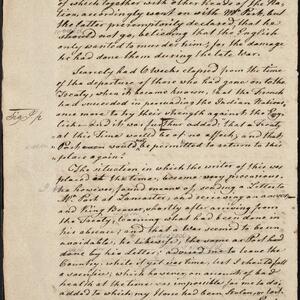 of which together with other Heads of the Na-
tion, accordingly went on with Mr. Park, but
the latter peremptorily declared, that he
should not go, believing that the English
only wanted to murder him, for the damage
he had done them during the late War.
Scarcely had a Week elapsed from the time
of the departure of those who had gone to the
Treaty, when it became known, that the French
had succeeded in persuading the Indian Nations,
once more to try their Strength against the Eng-
lish. and it was by thus added, that a Treaty
at this Time would be of no effect, and that
Park even would be permitted to return to this
place again!
The situation in which the writer of this was
placed at the time, became very precarious.
He however, found means of sending a Letter to
Mr. Park at Lancaster, and receiving an answer
and King Beaver, shortly after arriving from
the Treaty, learning what had been done in
his absence; and that a War seemed to be
unavoidable; he likewise, the same as Park had
done by his Letter; advised me to leave the
Country, while I yet had time, lest I should fall
a sacrifice, which however, on account of bad
health at the time was impossible for me to do,
added to which my Horse had been Stolen or lost.